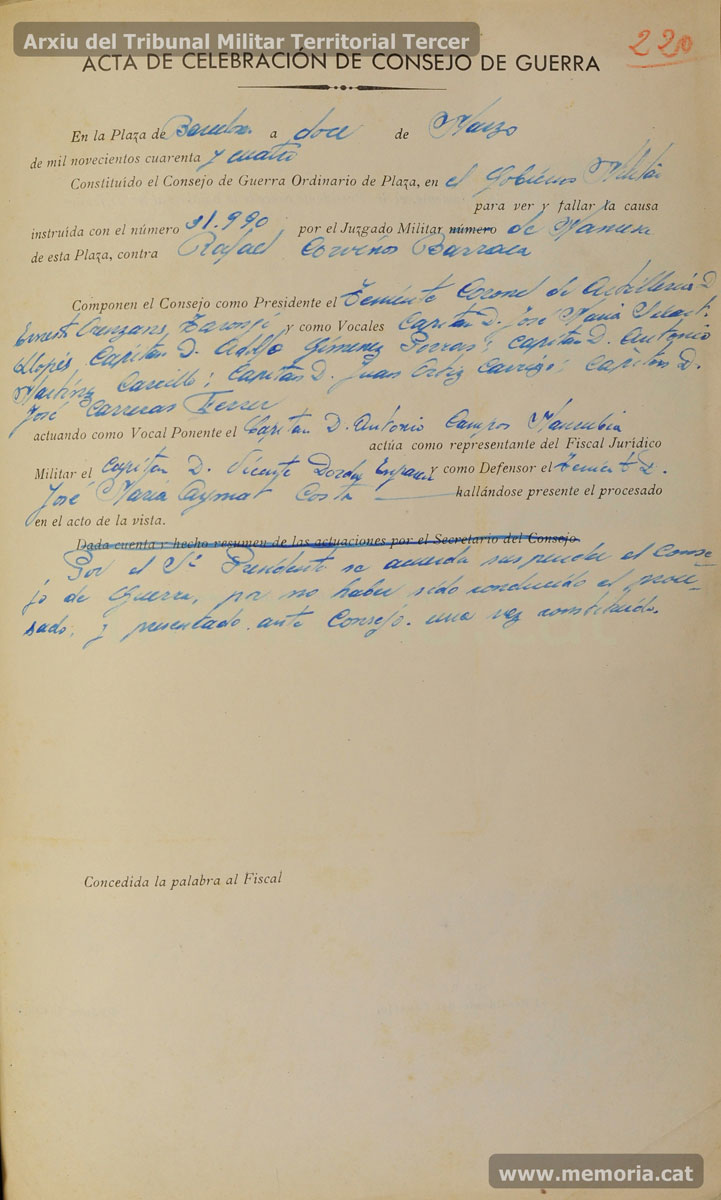 Arxiu del Tribunal Militar Territorial Tercer
220
ACTA DE CELEBRACIÓN DE CONSEJO DE GUERRA
En la Plaza de a doce de Marzo
de mil novecientos cuarenta y cuatro
Constituído el Consejo de Guerra Ordinario de Plaza, en el Gobierno Militar
para ver y fallar la causa
instruída con el número 31.990 por el Juzgado Militar número de Manresa
de esta Plaza, contra Rafael Corvinos Barraca
Componen el Consejo como Presidente el Teniente Coronel de Artilleria D.
Ernesto y como Vocales Capitan D. José Maria
Llopis, Capitan D. Adolfo Gimenez Porras; Capitan D. Antonio
Martinez Capitan D. Juan Ortiz Capitan D.
José Carreras Ferrer
actuando como Vocal Ponente el Capitan D. Antonio Campos
actúa como representante del Fiscal Jurídico
Militar el Capitan D. Vicente y como Defensor el Teniente D.
José Maria Aymat Costa hallándose presente el procesado
en el acto de la vista.
Dada cuenta y hecho resumen de las actuaciones por el Secretario del Consejo
Por el Sr Presidente se acuerda suspender el Conse-
jo de Guerra, por no haber sido conducido el proce-
sado, y presentado ante Consejo una vez constituido.
Concedida la palabra al Fiscal
www.memoria.cat